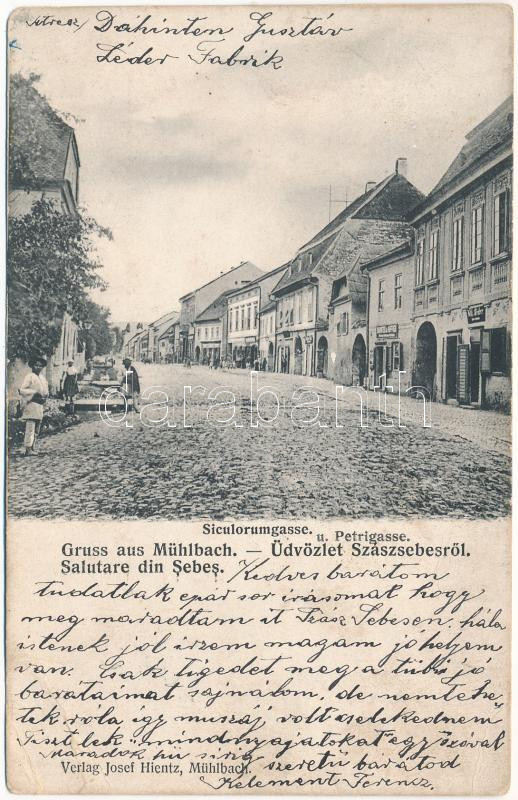 Dahinten Gusztáv
Léder Fabrik
darabanth
Siculorumgasse. u. Petrigasse.
Gruss aus Mühlbach. — Üdvözlet Szászsebesről.
Salutare din Şebeş. Kedves barátom
tudatlak epár sor irásomat hogy
meg maradtam it Szász Sebesen, hála
istenek jól irzem magam jó helyem
van. Csak tigedet meg a többi jó
barátaimat sajnálom, de nem tehe
tek róla igy muszáj volt cselekednem
Tisztlek mindnyájatokat egy szóval
maradok hü sirig szerető barátod
Verlag Josef Hientz, Mühlbach.
Kelement Ferencz.